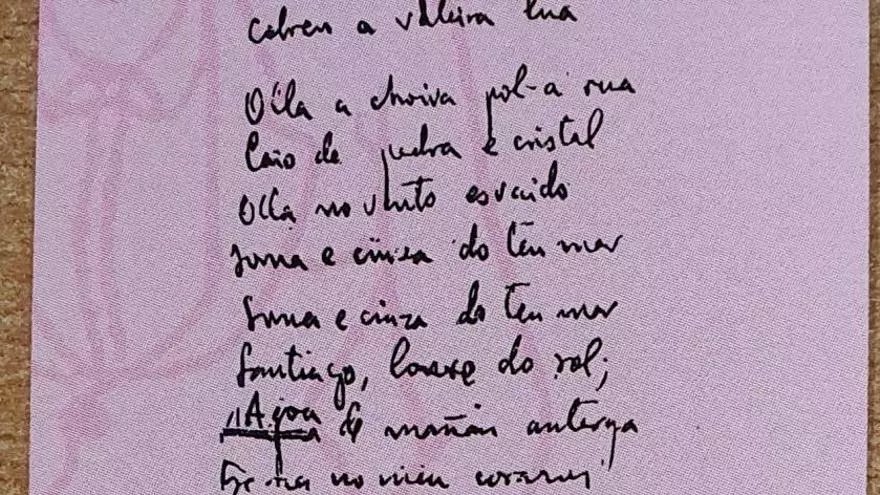 Cobren a valeira lua
Olla a choiva pol-a rua
laio de pedra e cristal
Olla no vento esvaido
soma e cinza do teu mar
soma e cinza do teu mar
Santiago, lonxe do sol;
Agoa da mañán anterga
trema no meu corazon